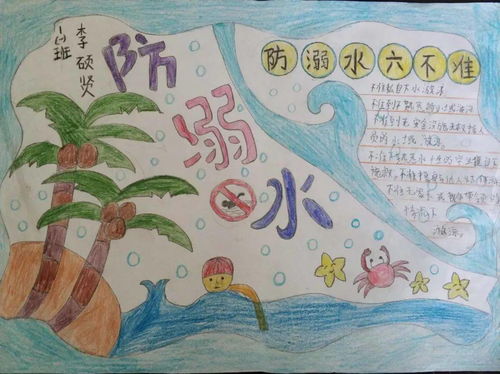 班
李硕贤
防
溺
水
防溺水六不准
不准私自下水游泳
不准到不熟悉的水域游泳
不准到无安全设施无救护人
员的水域游泳
不准不熟悉水性的学生擅自
施救。不准擅自与他人结伴游泳
不准在无家长或教师带领的
情况下
游泳。